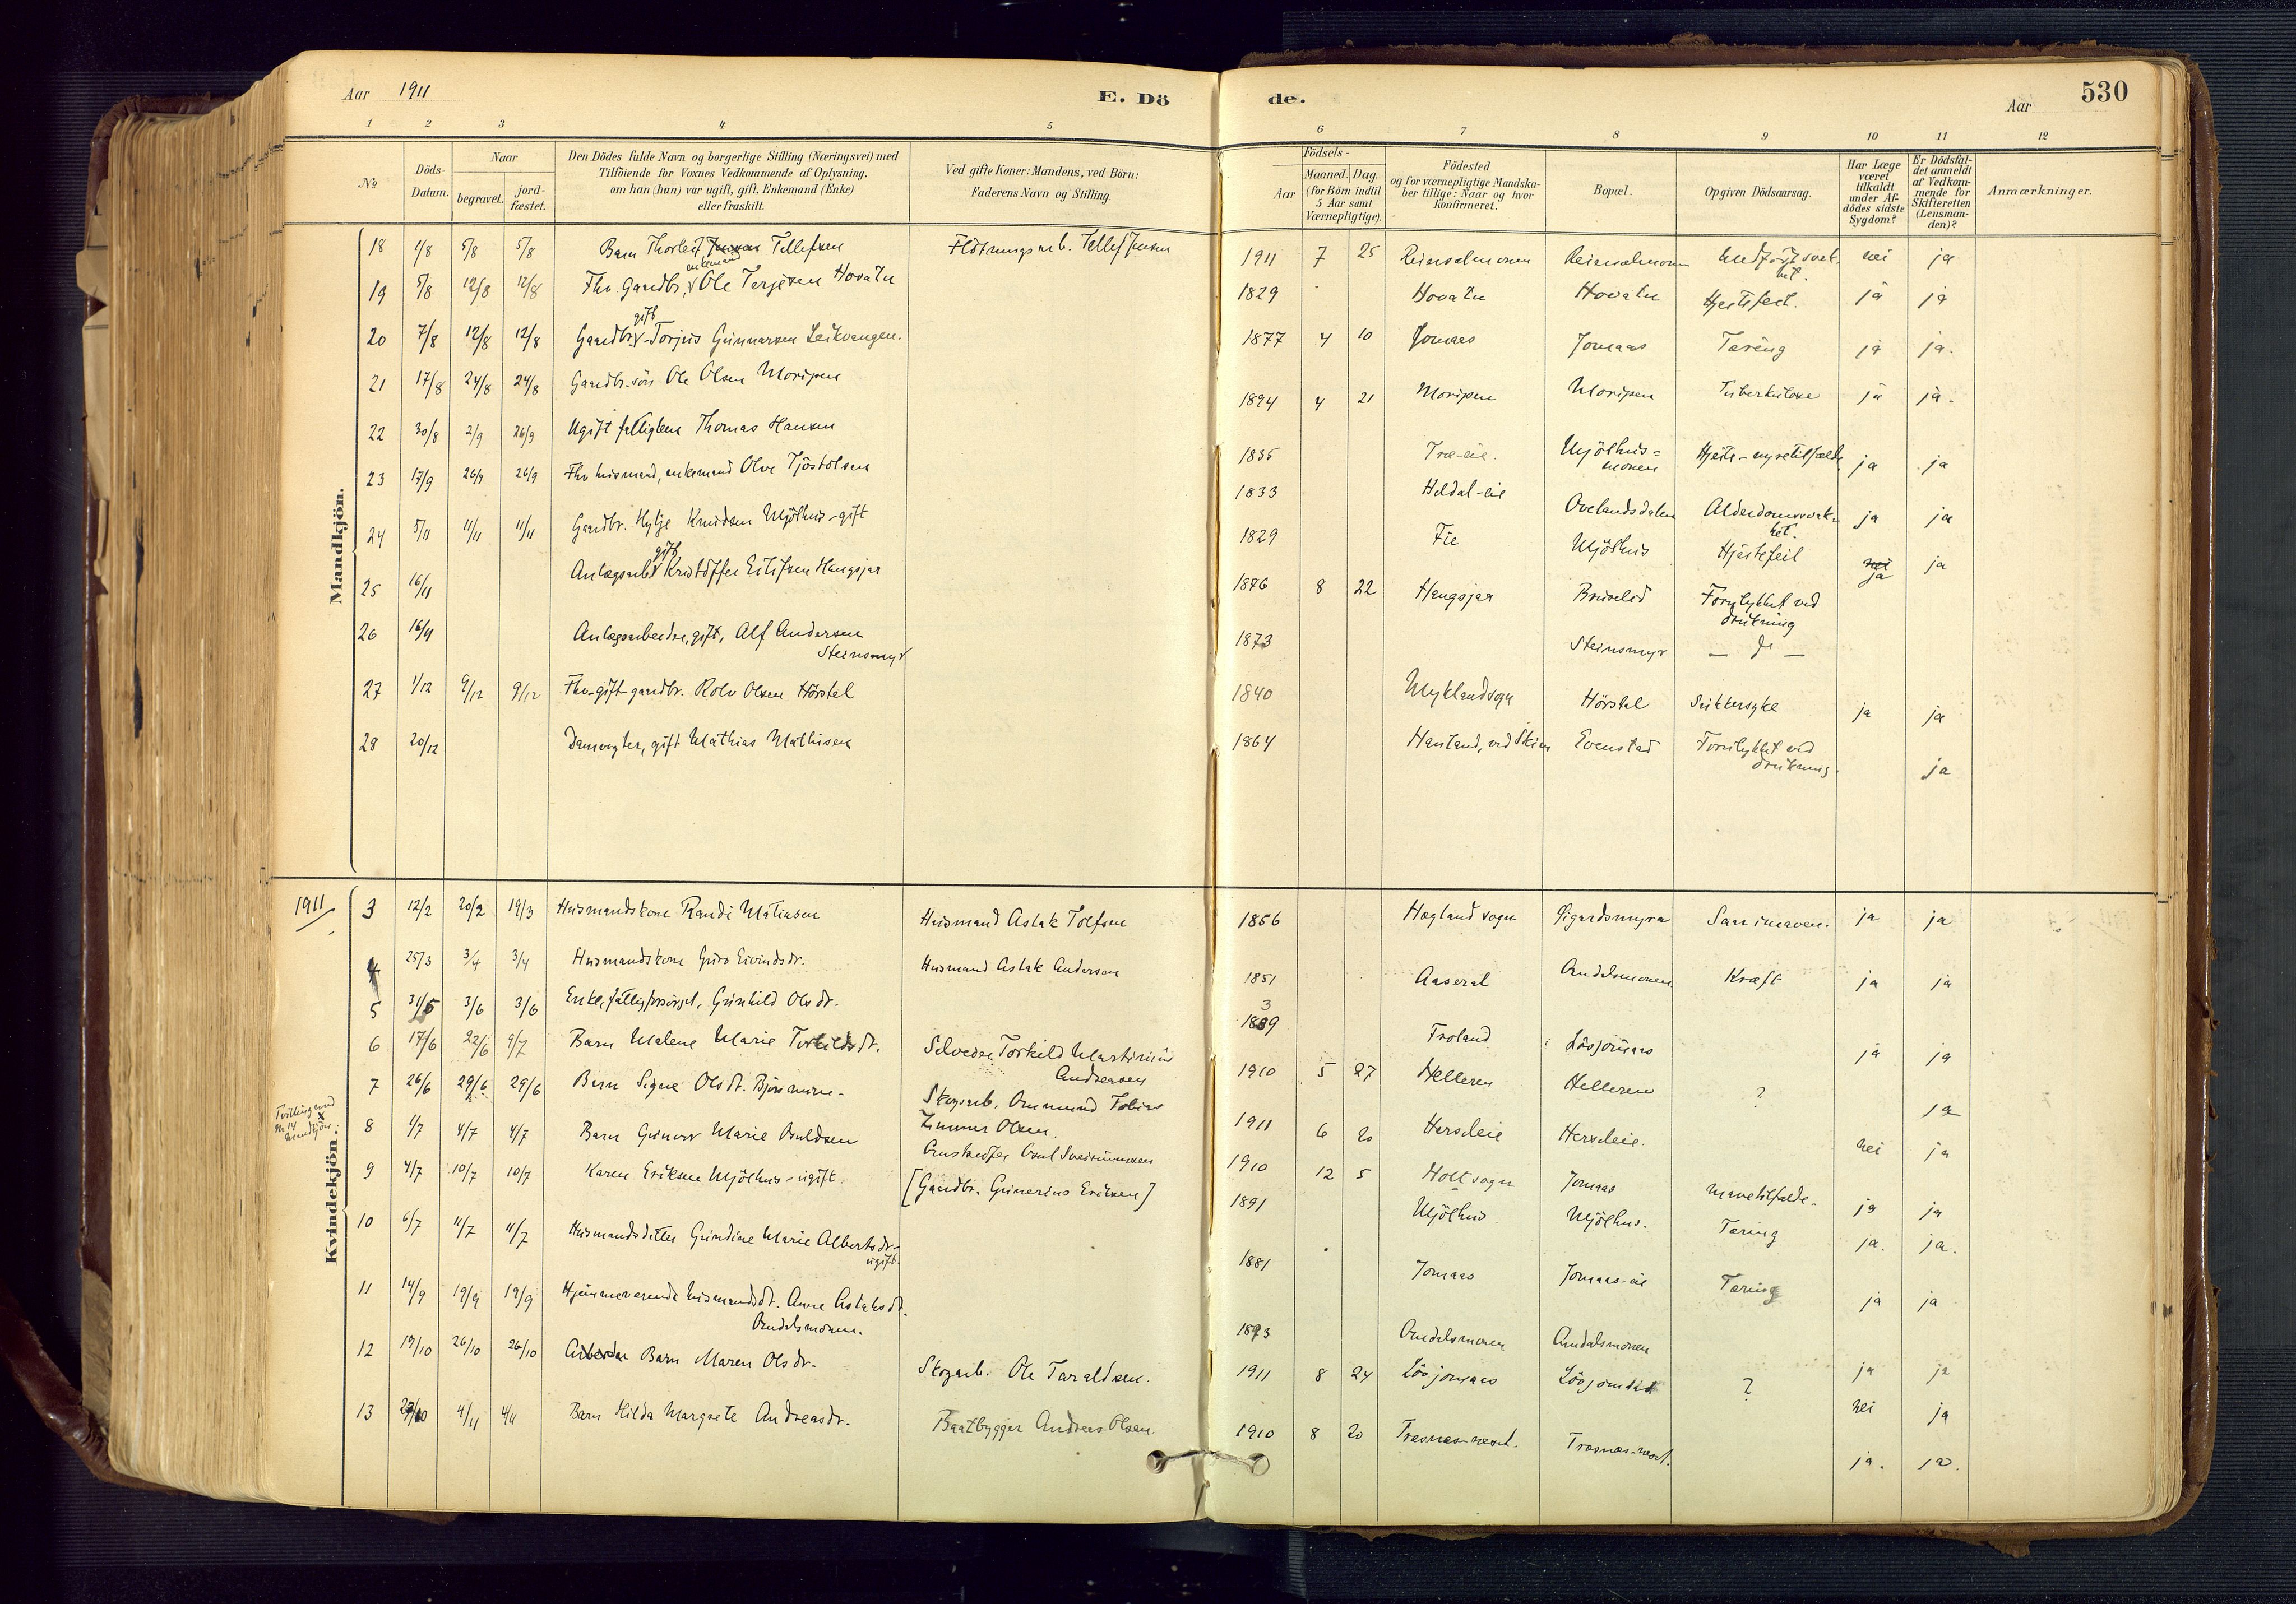 Aar 1911
E. Dö
de.
Aar
530
1 2 3 4 5 6 7 8 9 10 11 12
№
Döds-
Datum.
Naar
begravet.
jord-
fæstet.
Den Dödes fulde Navn og borgerlige Stilling (Næringsvei) med
Tilföiende for Voxnes Vedkommende af Oplysning.
om han (hun) var ugift, gift, Enkemand (Enke)
eller fraskilt.
Ved gifte Koner: Mandens, ved Börn:
Faderens Navn og Stilling.
Födsels-
Aar
Maaned. Dag.
(for Börn indtil
5 Aar samt
Værnepligtige).
Födested
og for værnepligtige Mandska-
ber tillige: Naar og hvor
konfirmeret.
Bopæl.
Opgiven Dödsaarsag.
Har Læge
været
tilkaldt
under Af-
dödes sidste
Sygdom?
Er Dödsfal-
det anmeldt
af Vedkom-
mende for
Skifteretten
(Lensman-
den)?
Anmærkninger.
Mandkjön.
18 1/8 5/8 5/8 Barn Thorleif Jensen Tellefsen Flötningsarb. Tellef Jensen 1911 7 25 Reiersølmoen Reiersølmoen Medfödt svak- nei ja
het.
19 5/8 12/8 12/8 Fhv. Gaardbr., enkemand Ole Terjesen Hovatn 1829 Hovatn Hovatn Hjertefeil. ja ja
20 7/8 12/8 12/8 Gaardbr. gift Torjus Gunnarsen Leikvangen. 1877 4 10 Jomaas Jomaas Tæring ja ja.
21 17/8 24/8 24/8 Gaardbr. sön Ole Olsen Moripen 1894 4 21 Moripen Moripen Tuberkulose ja ja.
22 30/8 2/9 26/9 Ugift fattiglem Thomas Hansen 1835 Træ-eie. Mjölhus=
monen Hjerte-nyretilfælde ja ja
23 17/9 26/9 26/9 Fhv husmand, enkemand Olve Tjöstolsen 1833 Heldal-eie Ovelandsdalen Alderdomssvak- ja ja
het.
24 5/11 11/11 11/11 Gaardbr. Hylje Knudsen Mjölhus-gift 1829 Fie Mjölhus Hjertefeil nei ja ja
25 16/11 Anlægsarb. gift Kristoffer Eilifsen Haugsjaa 1876 8 22 Haugsjaa Bruvelid Forulykket ved
drukning
26 16/11 Anlægsarbeider, gift, Alf Andersen
Steinsmyr 1873 Steinsmyr — do —
27 1/12 9/12 9/12 Fhv-gift-gaardbr. Rolv Olsen Hörstel 1840 Myklandsogn Hörstel Sukkersyke ja ja
28 20/12 Damvogter, gift Mathias Mathisen 1864 Hanland, ved Skien Evenstad Forulykket ved
drukning. ja
1911
Kvindekjön.
3 12/2 20/2 19/3 Husmandskone Randi Matiasen Husmand Aslak Tolfsen 1856 Høgland sogn Sigardsmyra Saar i maven. ja ja
4 25/3 3/4 3/4 Husmandskone Guro Eivindsdr. Husmand Aslak Andersen 1851 Aaseral Omdalsmonen Kræft ja ja
5 31/5 3/6 3/6 Enke, fattigforsörget, Gunhild Olsdr. 1839 Froland Lövjomaas ja ja
6 17/6 22/6 9/7 Barn Malene Marie Torkildsdr. Selveier Torkild Martinius
Andersen 1910 5 27 Helleren Helleren ? ja
7 26/6 29/6 29/6 Barn Signe Olsdr. Skogsarb. Ommund Tobias
Zimmer Olsen. 1911 6 20 Hersdeie Hersdeie. nei ja
Tvilling med
№ 14
Mandkjön.
8 1/7 4/7 4/7 Barn Gunvor Marie 1910 12 5 Holt sogn Jomaas Mavetilfælde. ja ja
9 4/7 10/7 10/7 Karen Eriksen Mjölhus-ugift. [Gaardbr. Gunerius Eriksen] 1891 Mjölhus Mjölhus. Tæring ja. ja.
10 6/7 11/7 11/7 Husmandsdatter Gundine Marie Albertsdr-
ugift. 1881 Jomaas Jomaas-eie Tæring ja ja
11 14/9 19/9 19/9 Hjemmeværende husmandsdt. Anne Aslaksdt.
Omdalsmonen. 1893 Omdalsmonen Omdalsmonen ja ja
12 19/10 26/10 26/10 Barn Maren Olsdr. Skogarb. Ole Taraldsen. 1911 8 24 Lövjomaas Lövjomaas ? nei ja
13 27/10 4/11 4/11 Barn Hilda Margrete Andreasdr. Baatbygger Andreas Olsen. 1910 8 20 Træsnes-næset. Træsnes-næset. ja. ja.